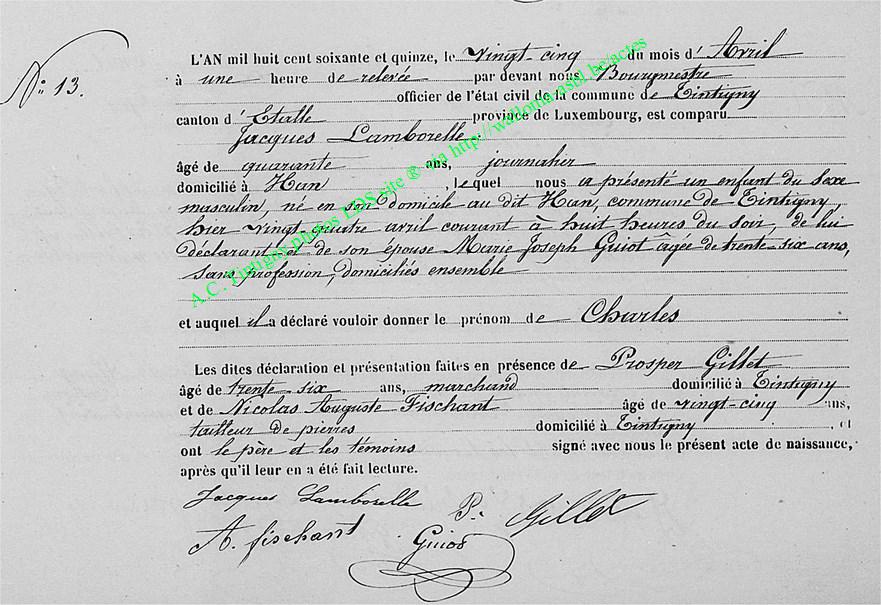 N° 13.
L'AN mil huit cent soixante et quinze, le vingt-cinq du mois d'Avril
à une heure de relevée par devant nous Bourgmestre
officier de l'état civil de la commune de Tintigny
canton d'Etalle province de Luxembourg, est comparu
Jacques Lamborelle
âgé de quarante ans, journalier
domicilié à Han, lequel nous a présenté un enfant du sexe
masculin, né en son domicile au dit Han, commune de Tintigny,
hier vingt-quatre avril courant à huit heures du soir, de lui
déclarant et de son épouse Marie Joseph Guiot âgée de trente-six ans,
sans profession, domiciliés ensemble
et auquel il a déclaré vouloir donner le prénom de Charles
Les dites déclaration et présentation faites en présence de Prosper Gillet
âgé de trente-six ans, marchand domicilié à Tintigny
et de Nicolas Auguste Fischant âgé de vingt-cinq ans,
tailleur de pierres domicilié à Tintigny, et
ont le père et les témoins signé avec nous le présent acte de naissance,
après qu'il leur en a été fait lecture.
Jacques Lamborelle P. Gillet
A. fischant Guiot
A.C. Tintigny photos LDS site ® via http://wallonia-asbl.be/actes